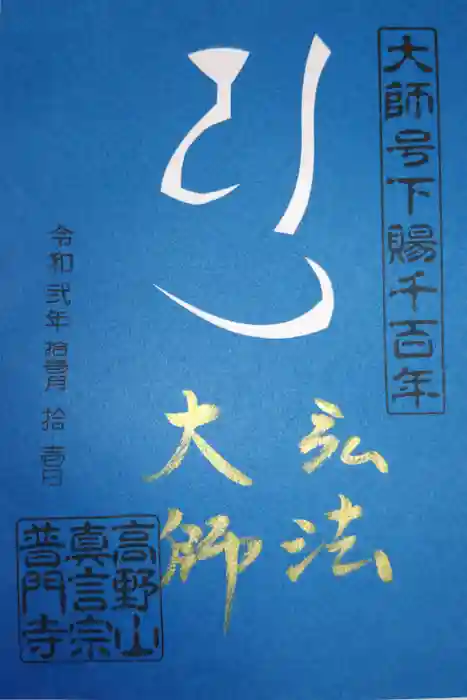 大師号下賜千百年
弘法
大師
令和弐年拾壱月拾壱日
高野山
真言宗
普門寺